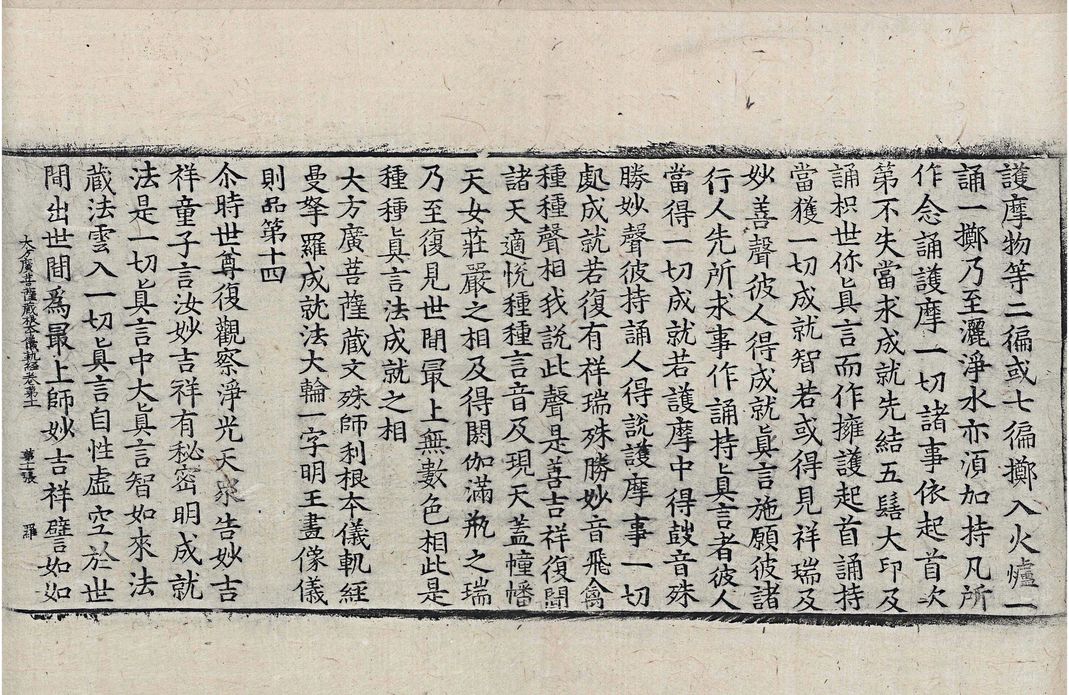 護摩物等二徧或七徧擲入火爐一
誦一擲乃至灑淨水亦湏加持凡所
作念誦護摩一切諸事依起首次
第不失當求成就先結五髻大印及
誦枳世你眞言而作擁護起首誦持
當獲一切成就智若或得見祥瑞及
妙善聲彼人得成就眞言施願彼諸
行人先所求事作誦持眞言者彼人
當得一切成就若護摩中得鼓音殊
勝妙聲彼持誦人得說護摩事一切
處成就若復有祥瑞殊勝妙音飛禽
種種聲相我說此聲是善吉祥復聞
諸天適悅種種言音及現天蓋幢幡
天女莊嚴之相及得閼伽滿瓶之瑞
乃至復見世間最上無數色相此是
種種眞言法成就之相
大方廣菩薩藏文殊師利根夲儀軌經
曼拏羅成就法大輪一字明王畫像儀
則品第十四
尒時世尊復觀察淨光天衆告妙吉
祥童子言汝妙吉祥有秘密明成就
法是一切眞言中大眞言智如來法
藏法雲入一切眞言自性虛空於世
大方廣菩薩藏根夲儀軌經卷第十一 第十一張 羅
間出世間爲最上師妙吉祥譬如如